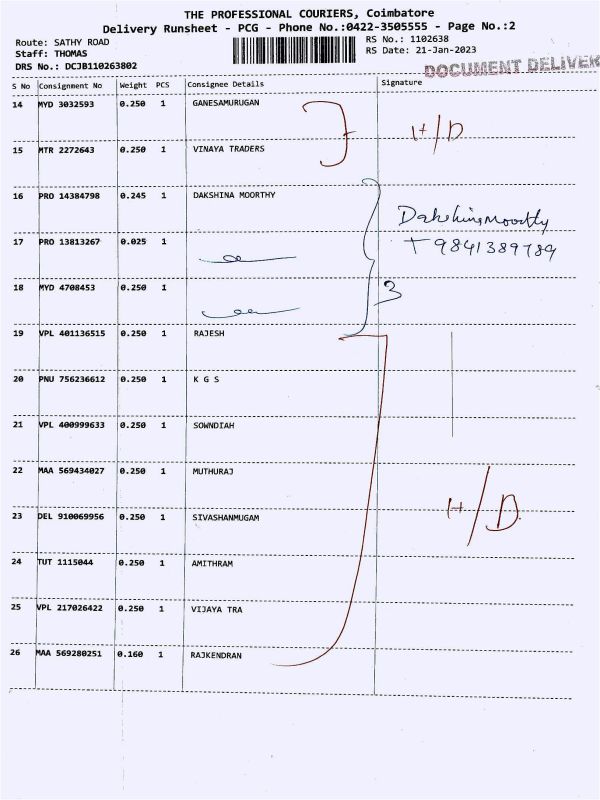 THE PROFESSIONAL COURIERS, Coimbatore
Delivery Runsheet - PCG - Phone No.:0422-3505555 - Page No.:2
Route: SATHY ROAD
Staff: THOMAS
DRS No.: DCJB110263802
RS No.: 1102638
RS Date: 21-Jan-2023
DOCUMENT DELIVER
S No Consignment No Weight PCS Consignee Details Signature
14 MYD 3032593 0.250 1 GANESAMURUGAN
H/D
15 MTR 2272643 0.250 1 VINAYA TRADERS
16 PRO 14384798 0.245 1 DAKSHINA MOORTHY
Dakshinamoorthy
17 PRO 13813267 0.025 1
9841389789
18 MYD 4708453 0.250 1
3
19 VPL 401136515 0.250 1 RAJESH
20 PNU 756236612 0.250 1 K G S
21 VPL 400999633 0.250 1 SOWNDIAH
22 MAA 569434027 0.250 1 MUTHURAJ
H/D
23 DEL 910069956 0.250 1 SIVASHANMUGAM
24 TUT 1115044 0.250 1 AMITHRAM
25 VPL 217026422 0.250 1 VIJAYA TRA
26 MAA 569280251 0.160 1 RAJKENDRAN